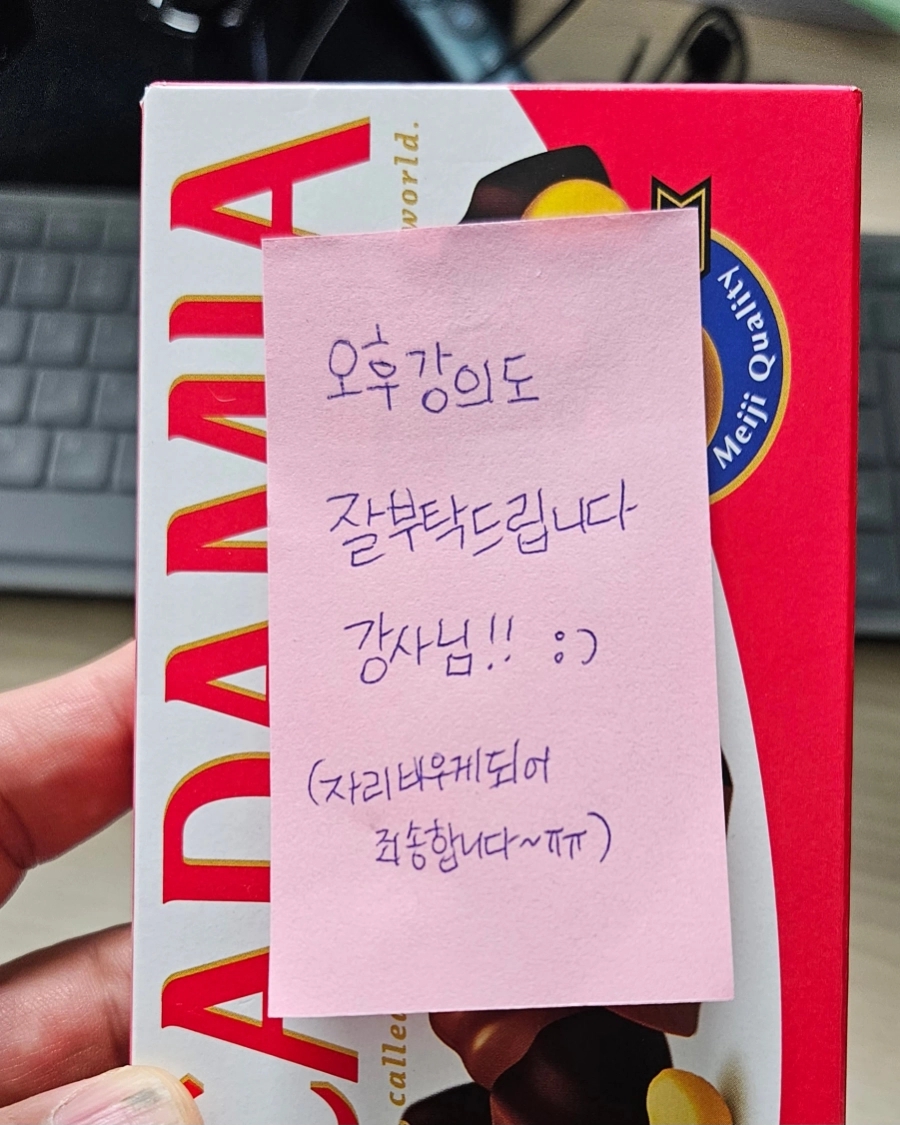 오후강의도
잘부탁드립니다
강사님!! :)
(자리비우게되어
죄송합니다~ㅠㅠ)
ADAMIA
world.
called
Meiji Quality